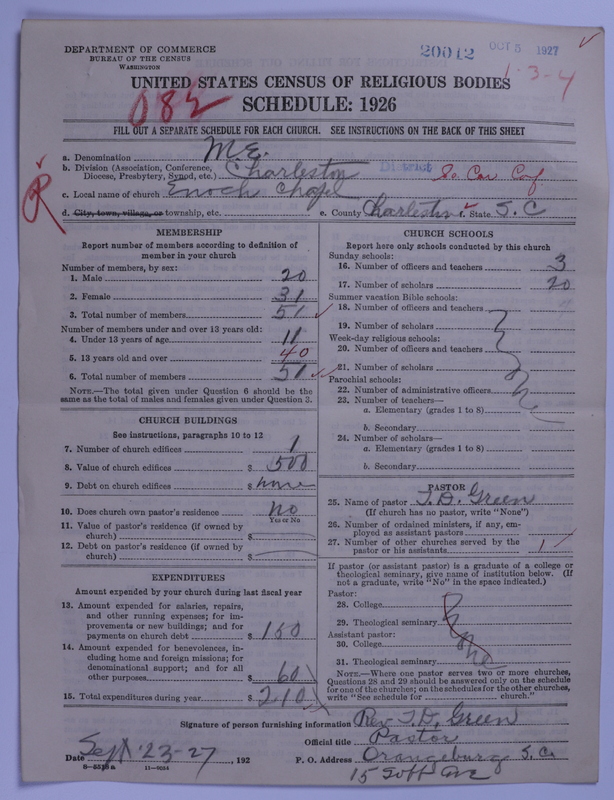 DEPARTMENT OF COMMERCE
BUREAU OF THE CENSUS
WASHINGTON
20012 OCT 5 1927
1-3-4
UNITED STATES CENSUS OF RELIGIOUS BODIES
SCHEDULE: 1926
082
FILL OUT A SEPARATE SCHEDULE FOR EACH CHURCH. SEE INSTRUCTIONS ON THE BACK OF THIS SHEET
a. Denomination M.E.
b. Division (Association, Conference, Diocese, Presbytery, Synod, etc.) Charleston District So. Car Conf.
c. Local name of church Enoch Chapel
R
d. City, town, village, or township, etc. e. County Charleston f. State S.C
MEMBERSHIP
Report number of members according to definition of member in your church
Number of members, by sex:
1. Male 20
2. Female 31
3. Total number of members 51
Number of members under and over 13 years old:
4. Under 13 years of age 11
5. 13 years old and over 40
6. Total number of members 51
NOTE.—The total given under Question 6 should be the same as the total of males and females given under Question 3.
CHURCH BUILDINGS
See instructions, paragraphs 10 to 12
7. Number of church edifices 1
8. Value of church edifices $ 500
9. Debt on church edifices $ none
10. Does church own pastor's residence no
Yes or No
11. Value of pastor's residence (if owned by church) $
12. Debt on pastor's residence (if owned by church) $
EXPENDITURES
Amount expended by your church during last fiscal year
13. Amount expended for salaries, repairs, and other running expenses; for improvements or new buildings; and for payments on church debt $ 150
14. Amount expended for benevolences, including home and foreign missions; for denominational support; and for all other purposes $ 60
15. Total expenditures during year $ 210
CHURCH SCHOOLS
Report here only schools conducted by this church
Sunday schools:
16. Number of officers and teachers 3
17. Number of scholars 20
Summer vacation Bible schools:
18. Number of officers and teachers
19. Number of scholars
Week-day religious schools:
20. Number of officers and teachers
21. Number of scholars
Parochial schools:
22. Number of administrative officers
23. Number of teachers—
a. Elementary (grades 1 to 8)
b. Secondary
24. Number of scholars—
a. Elementary (grades 1 to 8)
b. Secondary
None
PASTOR
25. Name of pastor T. D. Green
(If church has no pastor, write "None")
26. Number of ordained ministers, if any, employed as assistant pastors
27. Number of other churches served by the pastor or his assistants 1
If pastor (or assistant pastor) is a graduate of a college or theological seminary, give name of institution below. (If not a graduate, write "No" in the space indicated.)
Pastor:
28. College
29. Theological seminary
Assistant pastor:
30. College
31. Theological seminary
None
NOTE.—Where one pastor serves two or more churches, Questions 28 and 29 should be answered only on the schedule for one of the churches; on the schedules for the other churches, write "See schedule for church."
Signature of person furnishing information Rev. T. D. Green
Official title Pastor
Date Sept 23-27, 192
P. O. Address Orangeburg S. C.
15
Ave
8-5319a 11-9034